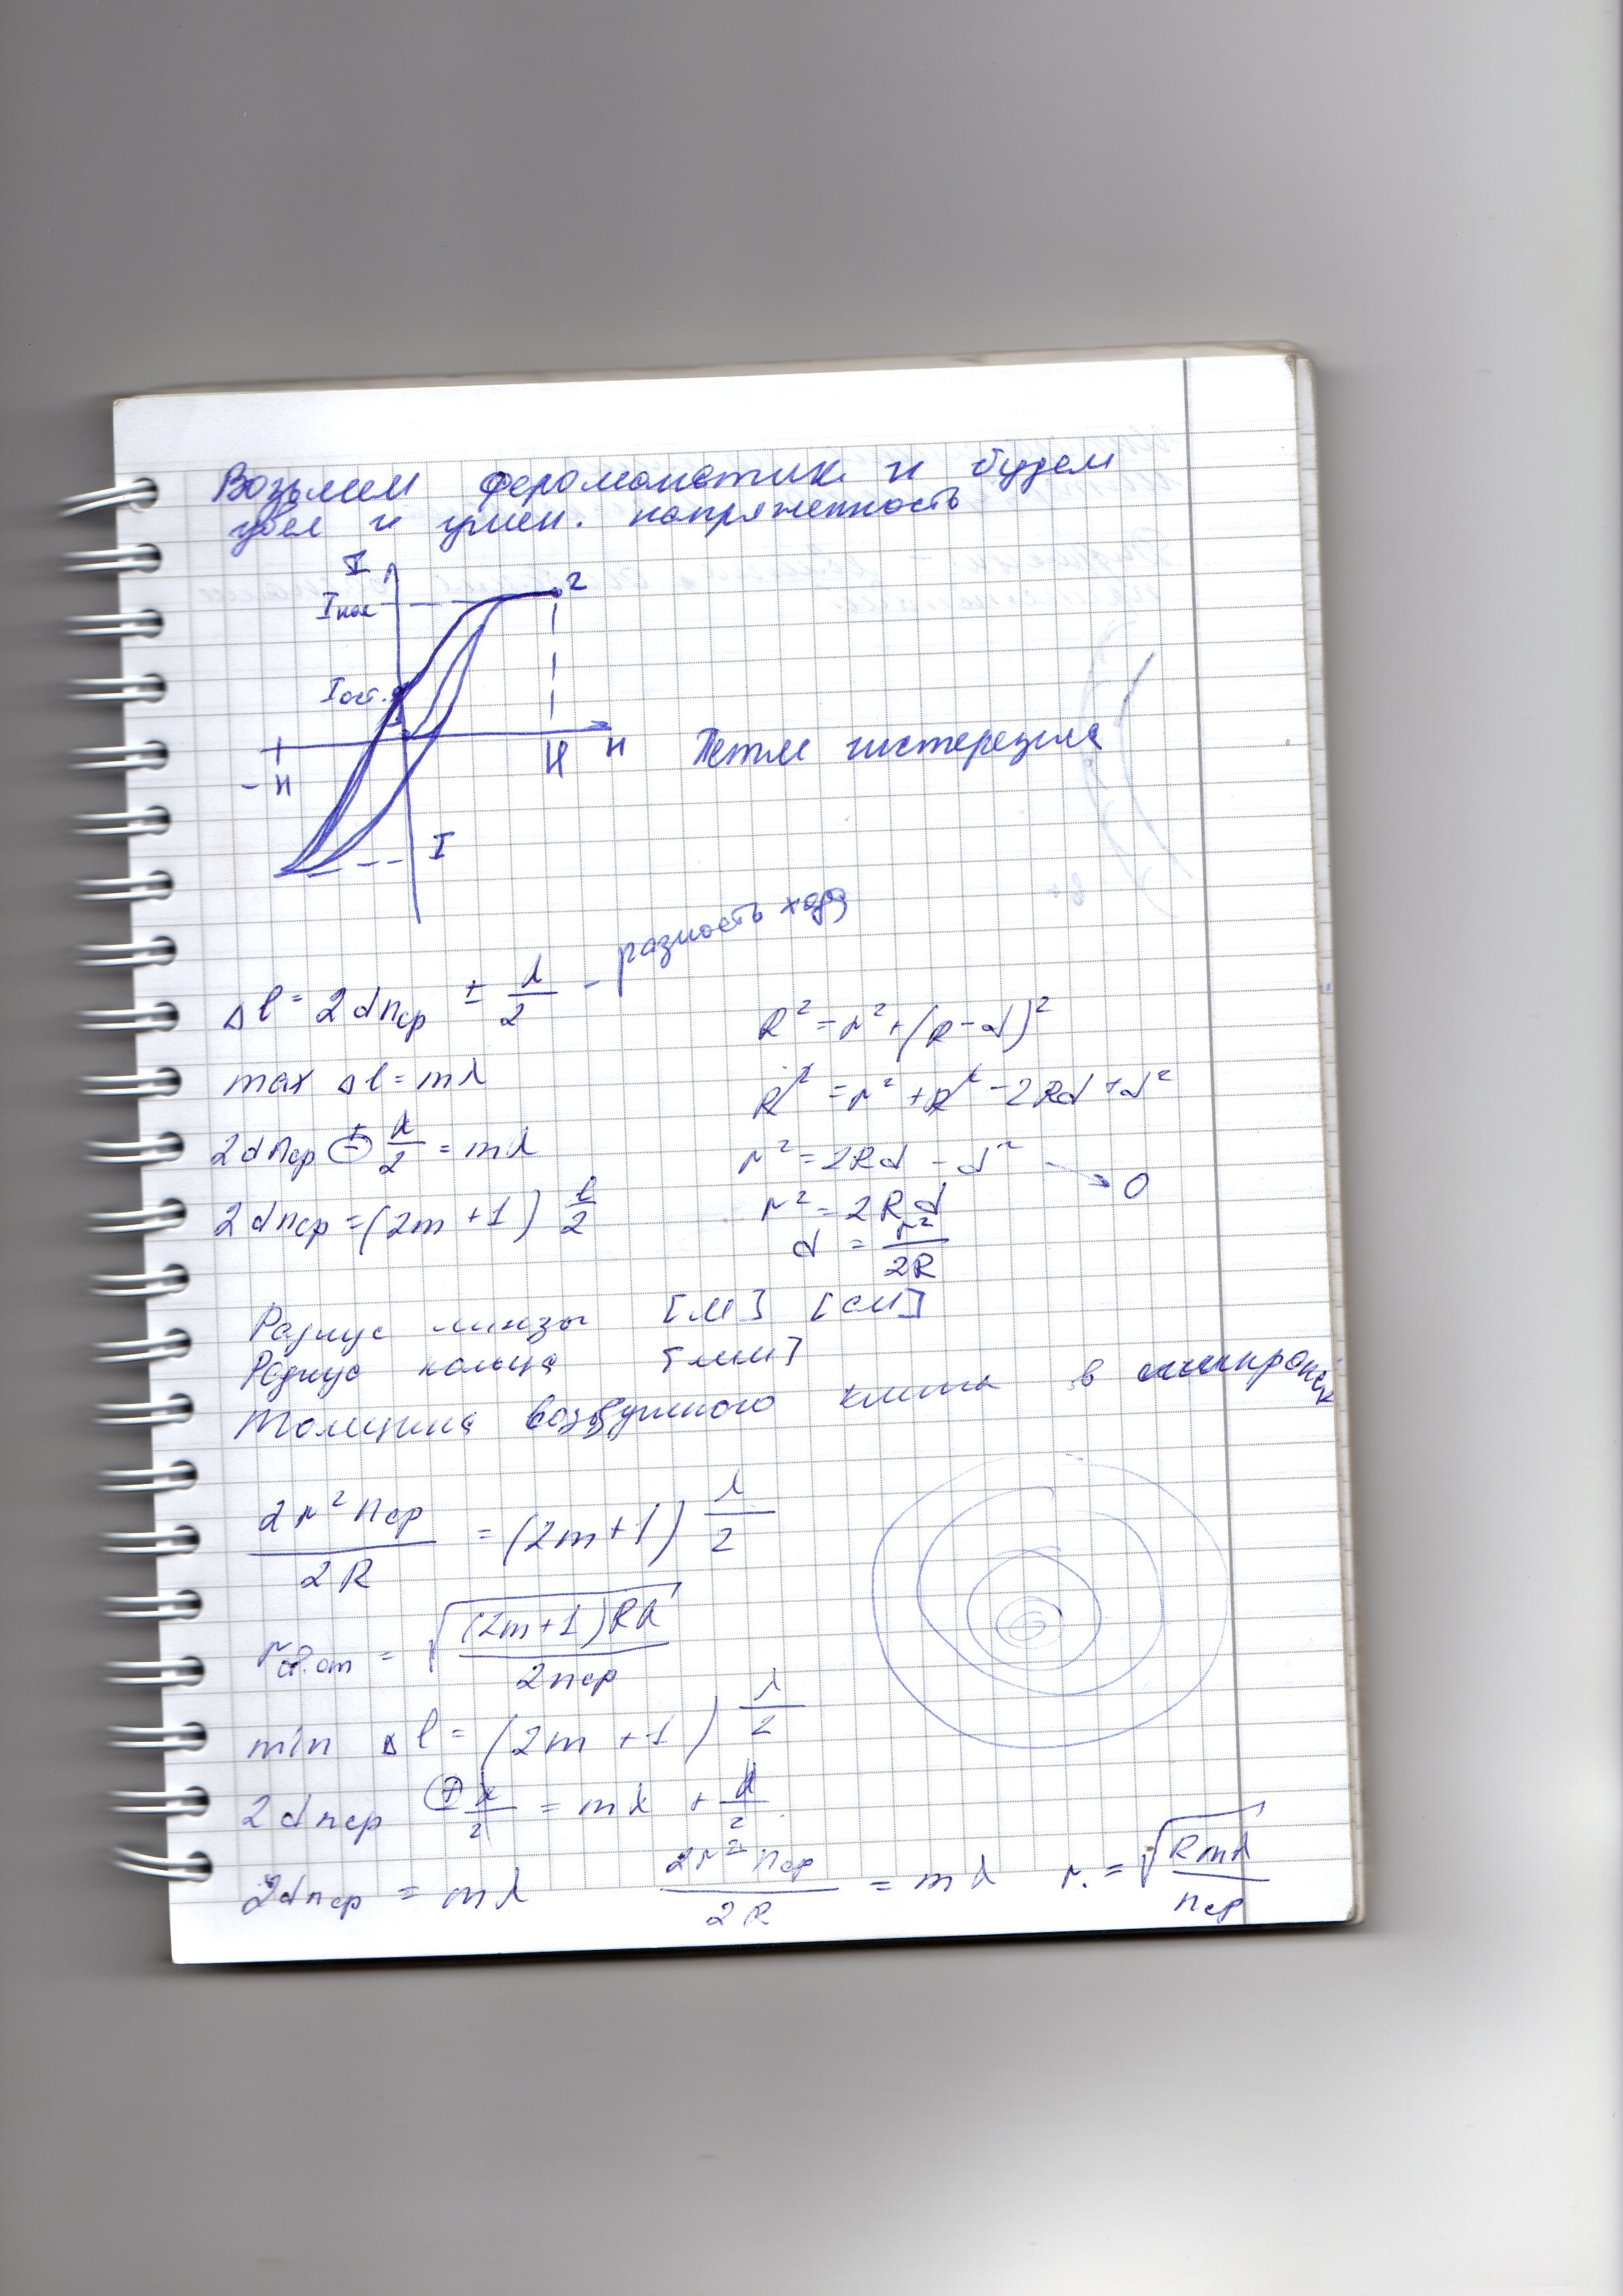 Возьмем феромагнетик и будем
увел и умен. напряженность
I
Iнас
2
Iост.
H
H
-H
I
Петля гистерезиса
Δl = 2dnср ± λ/2 - разность хода
max Δl = mλ
2dnср ± λ/2 = mλ
2dnср = (2m+1) λ/2
R² = r² + (R-d)²
R² = r² + R² - 2Rd + d²
r² = 2Rd - d² → 0
r² = 2Rd
d = r²/2R
Радиус линзы [м] [см]
Радиус кольца [мм]
Толщина воздушного клина в микронах
2r²nср/2R = (2m+1) λ/2
rсв.от = √((2m+1)Rλ/2nср)
min Δl = (2m+1) λ/2
2dnср ± λ/2 = mλ + λ/2
2dnср = mλ 2r²nср/2R = mλ r = √(Rmλ/nср)